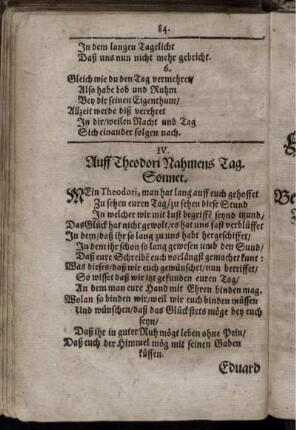 84.
In dem langen Tagelicht
Daß uns nun nicht mehr gebricht.
6.
Gleich wie du den Tag vermehret/
Also habe Lob und Ruhm
Bey dir seinen Eigenthum/
Allzeit werde diß verehret
In dir/weilen Nacht und Tag
Sich einander folgen nach.
IV.
Auff Theodori Nahmens Tag.
Sonnet.
MEin Theodori, man hat lang auff euch gehoffet
Zu sehen euren Tag/zu sehen diese Stund
In welcher wir mit lust begriffē seynd
Das Glück hat nicht gewolt/es hat uns fast verblüffet
In dem/daß ihr so lang zu uns habt hergeschiffet/
In dem ihr schon so lang gewesen umb den Sund/
Daß eure Schreibē euch vorlängst gemachet kunt:
Was dieses/daß wir euch gewünschet/nun betriffet/
So wisset daß wir itzt gefunden euren Tag/
An dem man eure Hand mit Ehren binden mag.
Wolan so binden wir/weil wir euch binden müssen
Und wünschen/daß das Glück stets möge bey euch
seyn/
Daß ihr in guter Ruh mögt leben ohne Pein/
Daß euch der Himmel mög mit seinen Gaben
küssen.
Eduard